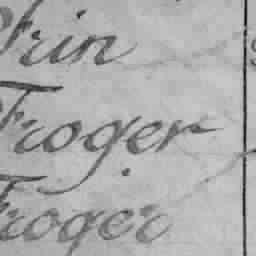 Frin
Froger
Froger